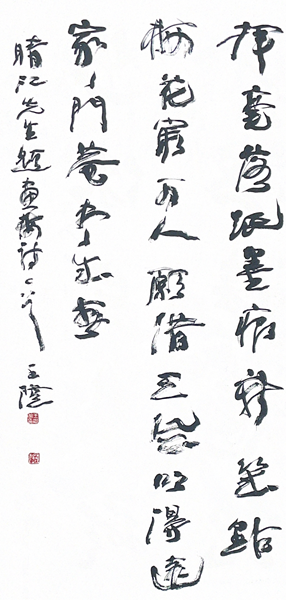 揮毫落紙墨痕新幾點
梅花最可人願借天風吹得遠
家〻門巷盡成春
晴江先生題畫梅詩 王